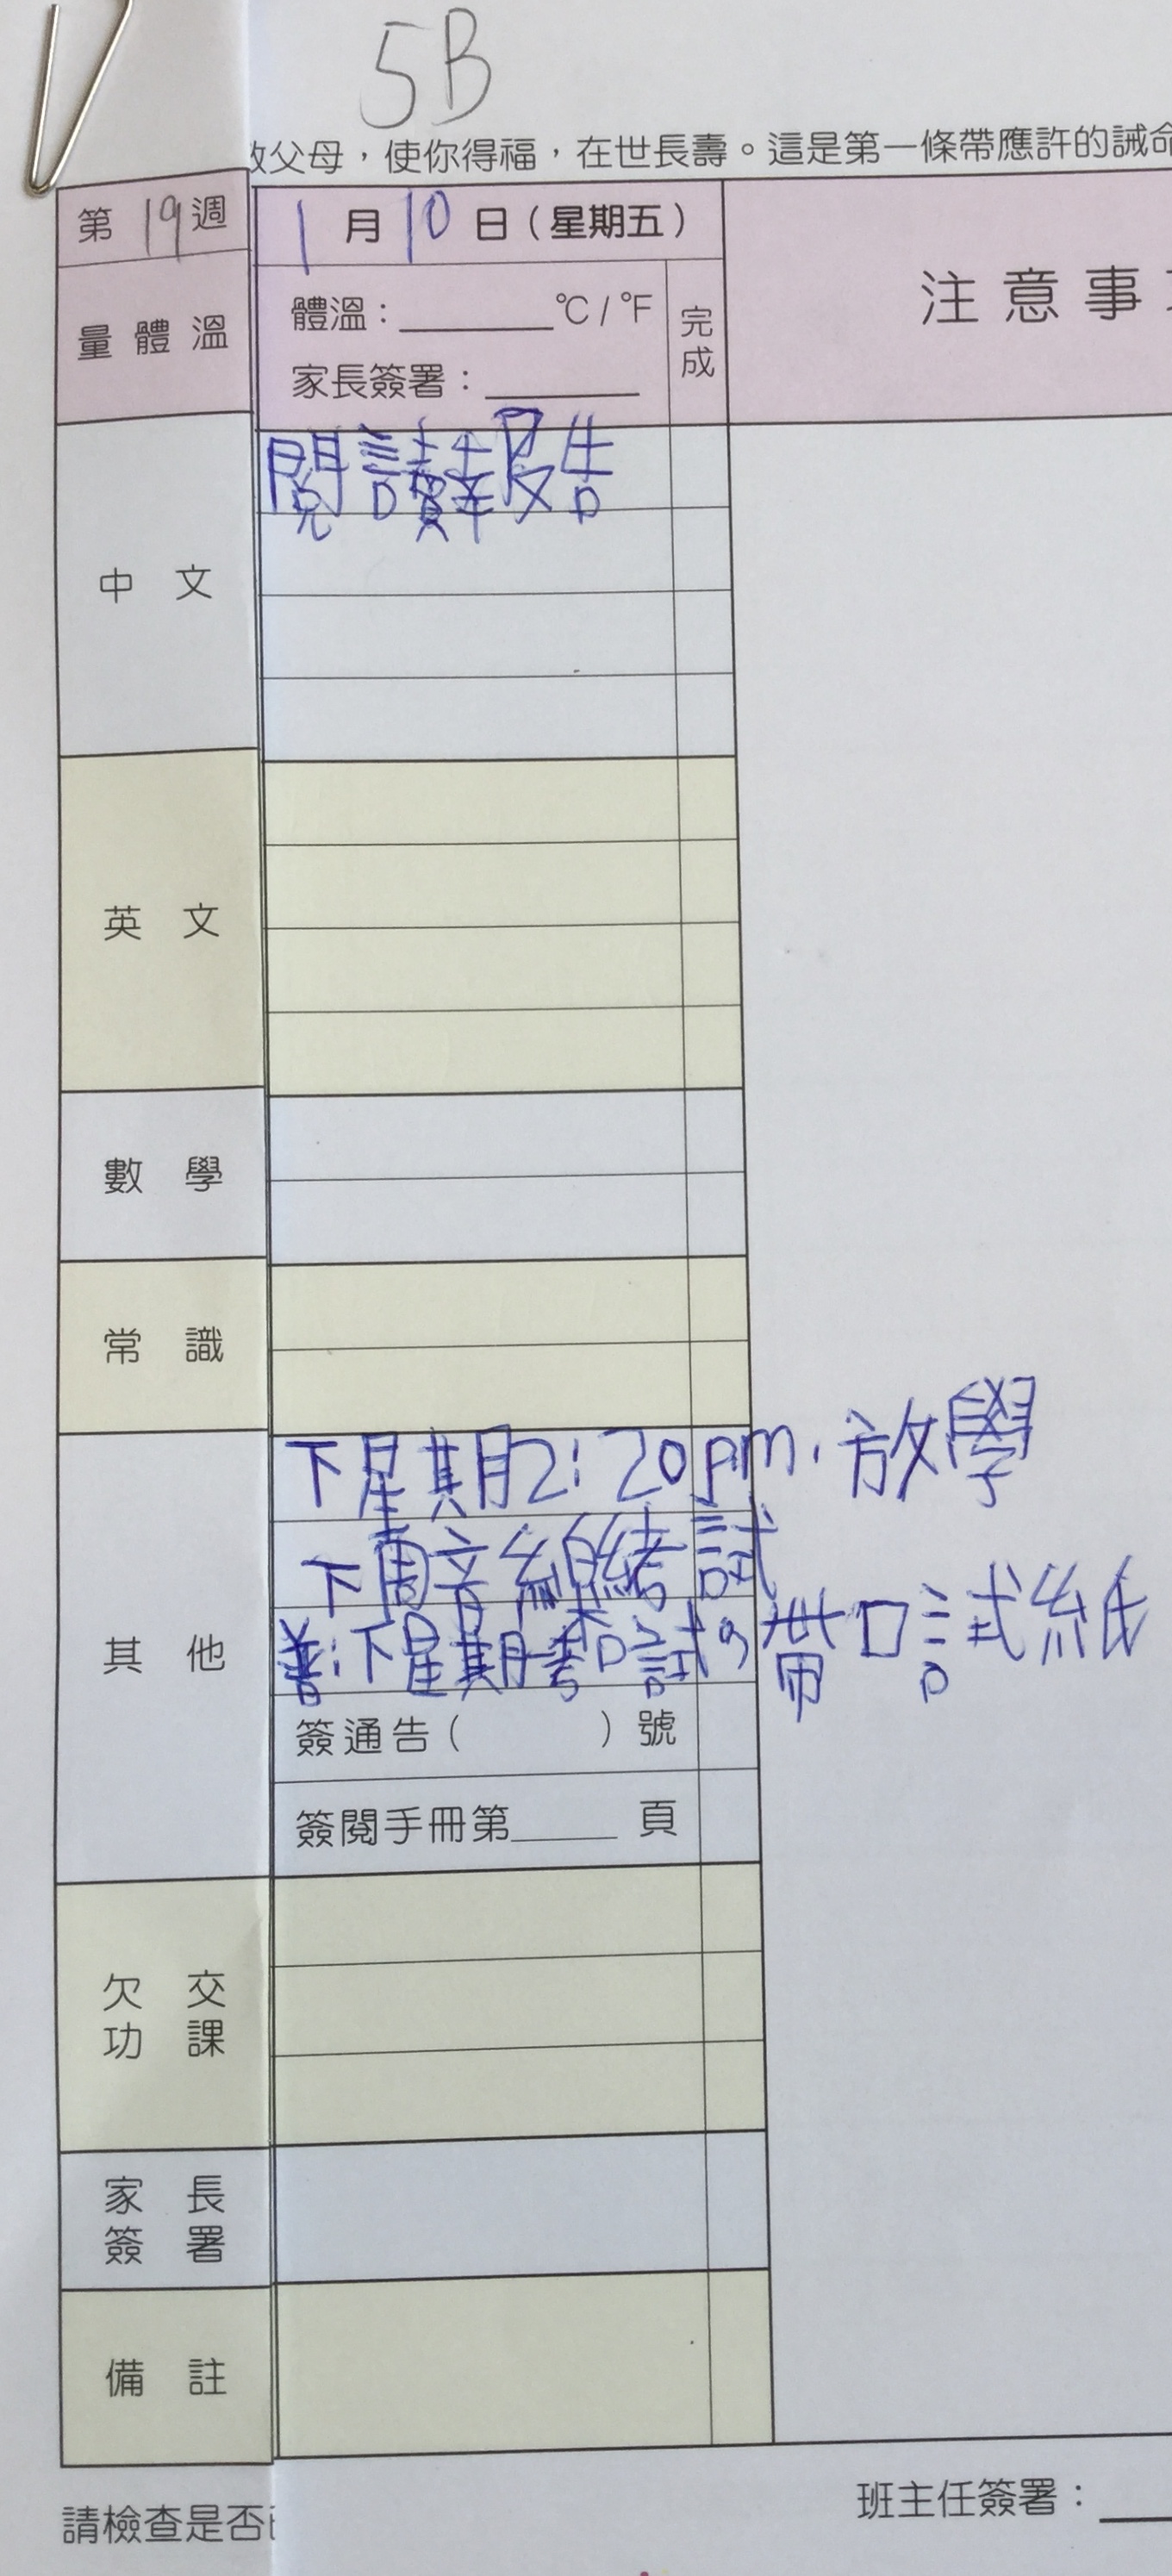 5B
父母，使你得福，在世長壽。這是第一條帶應許的誡命
第19週
1月10日（星期五）
注意事
量體溫
體溫：______℃/℉
家長簽署：______
完成
中文
閱讀報告
英文
數學
常識
其他
下星期2:20pm.放學
下周音 試
普:下星期考口試，帶口試紙
簽通告（ ）號
簽閱手冊第____頁
欠交功課
家長簽署
備註
請檢查是否
班主任簽署：